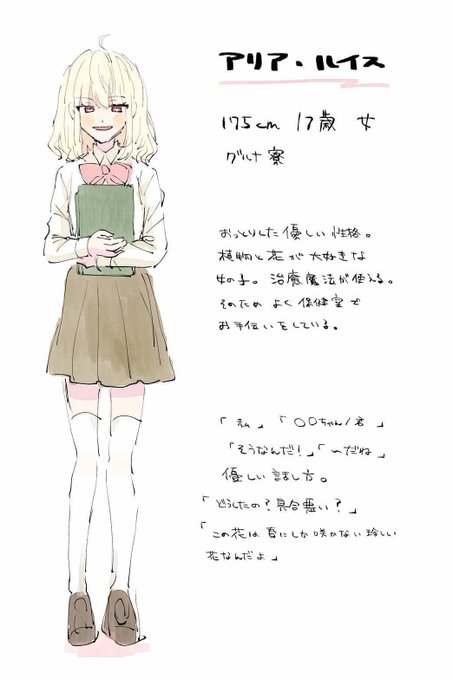 アリア・ルイス
175cm 17歳 女
グルナ寮
おっとりした優しい性格。
植物と花が大好きな
女の子。治癒魔法が使える。
そのため よく保健室で
お手伝いをしている。
「私」「〇〇ちゃん/君」
「そうなんだ!」「〜だね」
優しい話し方。
「どうしたの?具合悪い?」
「この花は春にしか咲かない珍しい
花なんだよ」